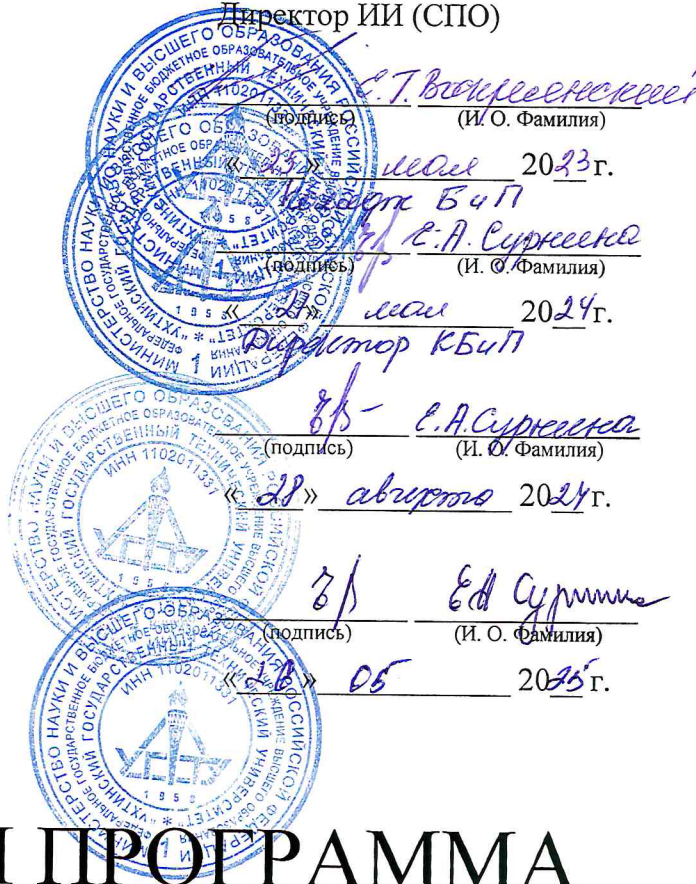 Директор ИИ (СПО)
Е.Т. Воскресенский
(подпись) (И. О. Фамилия)
«25» мая 2023 г.
БиП
Е.А. Суркина
(подпись) (И. О. Фамилия)
«21» мая 2024 г.
Директор КБиП
Е.А. Суркина
(подпись) (И. О. Фамилия)
«28» августа 2024 г.
ЕА Суркина
(подпись) (И. О. Фамилия)
« » 05 2025 г.
МИНИСТЕРСТВО НАУКИ И ВЫСШЕГО ОБРАЗОВАНИЯ РОССИЙСКОЙ ФЕДЕРАЦИИ
ФЕДЕРАЛЬНОЕ ГОСУДАРСТВЕННОЕ БЮДЖЕТНОЕ ОБРАЗОВАТЕЛЬНОЕ УЧРЕЖДЕНИЕ ВЫСШЕГО ОБРАЗОВАНИЯ
"УХТИНСКИЙ ГОСУДАРСТВЕННЫЙ ТЕХНИЧЕСКИЙ УНИВЕРСИТЕТ"
ИНН 1102011331
УГТУ
1958
1
ПРОГРАММА